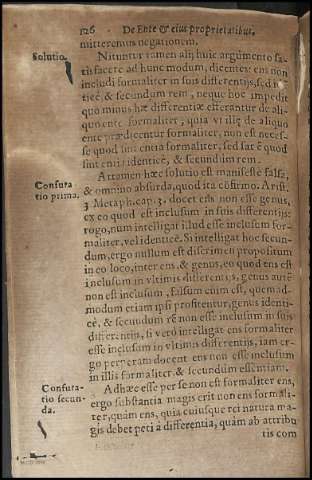 126 De Ente & eius proprietatibus,
mitteremus negationem.
Solutio.
Nituntur tamen alij huic argumento sa-
tisfacere ad hunc modum, dicentes ens non
includi formaliter in suis differentijs, sed idẽ
ticè, & secundum rem, neque hoc impedit
quo minus hæ differentiæ efferantur de ali
quo ente formaliter; quia vt aliq̃ de aliquo
ente prædicentur formaliter, non est neces-
se quod sint entia formaliter, sed sat ẽ quod
sint entia identicè, & secundum rem.
Confuta
tio prima.
Attamen hæc solutio est manifestè falsa,
& omnino absurda, quod ita cõfirmo. Arist.
3 Metaph. cap. 3. docet ens non esse genus,
ex eo quod est inclusum in suis differentijs:
rogo, num intelligat illud esse inclusum for-
maliter, vel identicè. Si intelligat hoc secun-
dum, ergo nullum est discrimẽ propositum
in eo loco, inter ens, & genus, eo quod ens est
inclusum in vltimis differentijs, genus autẽ
non est inclusum, falsum enim est, quemad-
modum etiam ipsi profitentur, genus identi-
cè, & secundum rẽ non esse inclusum in suis
differentijs, si verò intelligat ens formaliter
esse inclusum in vltimis differentijs, iam er-
go perperam docent ens non esse inclusum
in illis formaliter, & secundùm essentiam.
Confuta-
tio secun-
da.
Adhæc esse per se non est formaliter ens,
ergo substantia magis erit non ens formali-
ter, quàm ens, quia cuiusque rei natura ma-
gis debet peti à differentia, quàm ab attribu
tis com